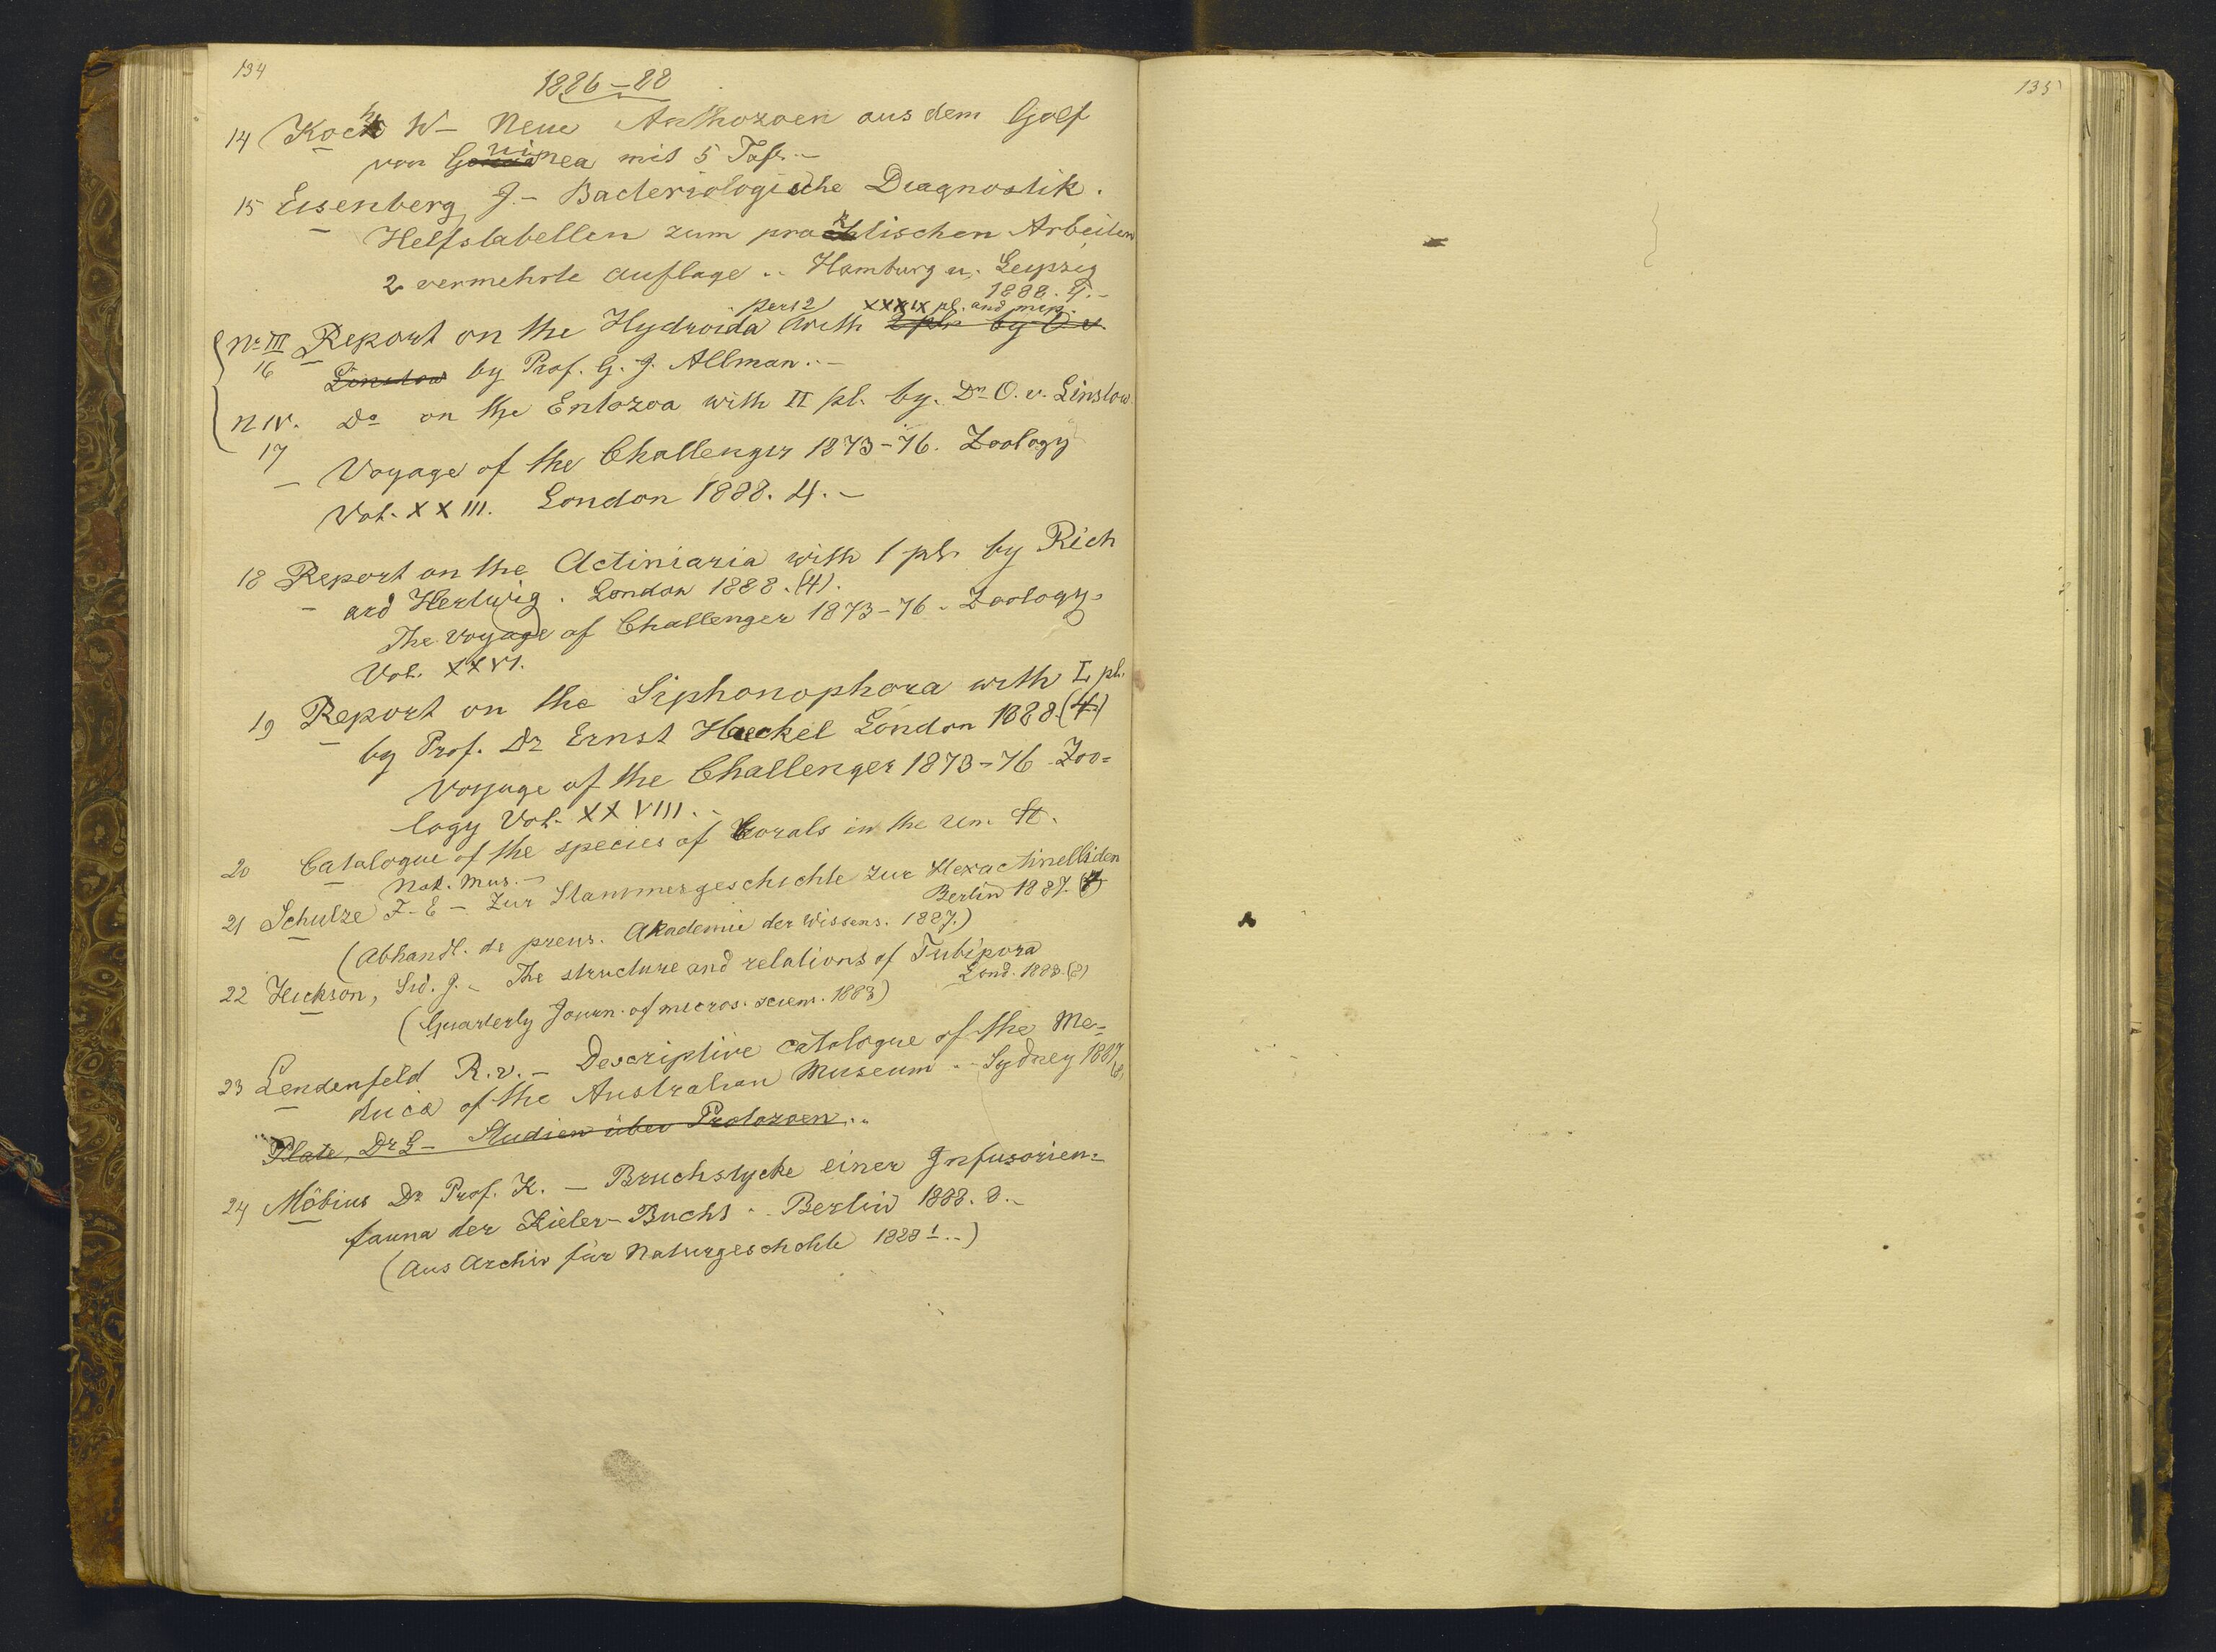 134
1886-88
14 Koch W- Neue Anthozoen aus dem Golf
von Guinea mit 5 Taf.-
15 Eisenberg J.- Bacteriologische Diagnostik.
Helfstabellen zum praktischen Arbeiten
2 vermehrte auflage .. Hamburg u. Leipzig
1888. 4.-
Part 2 XXXIX pl. and map.
No III Report on the Hydroida with 2 pl. by O v.
16 Linstow by Prof. G. J. Allman.-
N IV. Do on the Entozoa with II pl. by. Dr O. v. Linstow.
17
- Voyage of the Challenger 1873-76. Zoology
Vol. XXIII. London 1888. 4.-
18 Report on the Actiniaria with 1 pl. by Rich
ard Hertwig. London 1888. (4).
The voyage of Challenger 1873-76. Zoology.
Vol. XXVI.
19 Report on the Siphonophora with L pl.
by Prof. Dr Ernst Haeckel London 1888 (4)
Voyage of the Challenger 1873-76 Zoo=
logy Vol. XXVIII.-
20 Catalogue of the species of Corals in the Un. St.
Nat. Mus.-
21 Schulze F. E - Zur Stammesgeschichte zur Hexactinelliden
Berlin 1887. (4)
(Abhandl. de preus. Akademie der Wissens. 1887.)
22 Hickson, Sid. J. - The structure and relations of Tubipora
Lond. 1883. (8)
(Quarterly Journ. of micros. sciem. 1883)
23 Lendenfeld R. v. - Descriptive catalogue of the Me=
duca of the Australian Museum .- Sydney 1887 (8)
Plate, Dr L - Studien über Protozoen..
24 Möbius Dr Prof. K. - Bruchstycke einer Infusorien=
fauna der Kieler-Bucht .. Berlin 1888. 8.-
(Aus Archiv für Naturgeschchte 1888 1..)
135